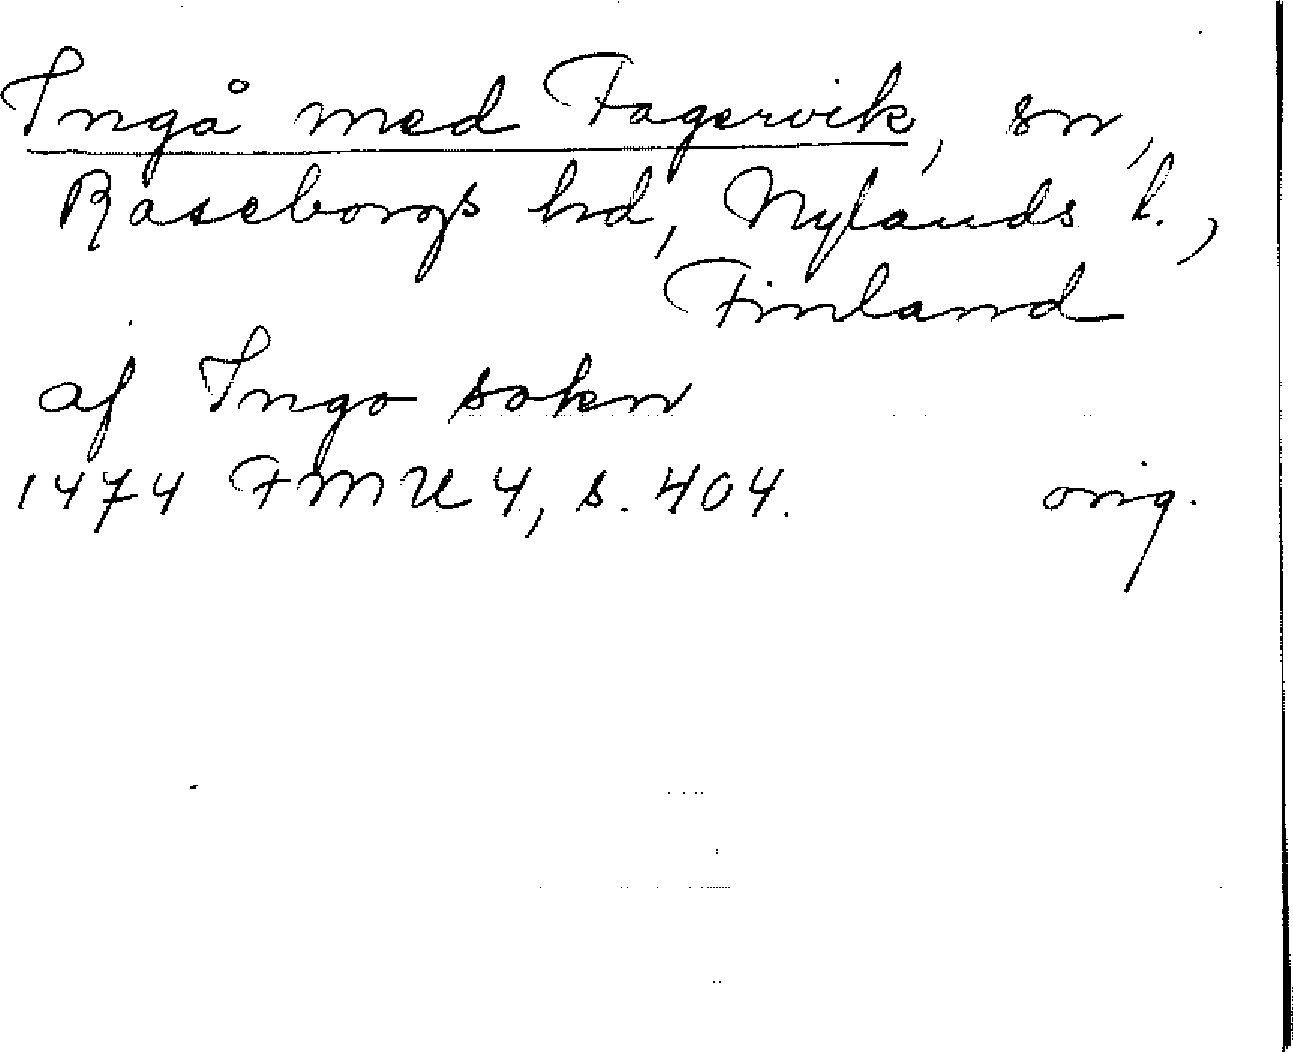 Ingå med Fagervik, sn,
Raseborgs hd, Nylands l.,
Finland
af Ingo sokn
1474 FMU 4, s. 404. orig.